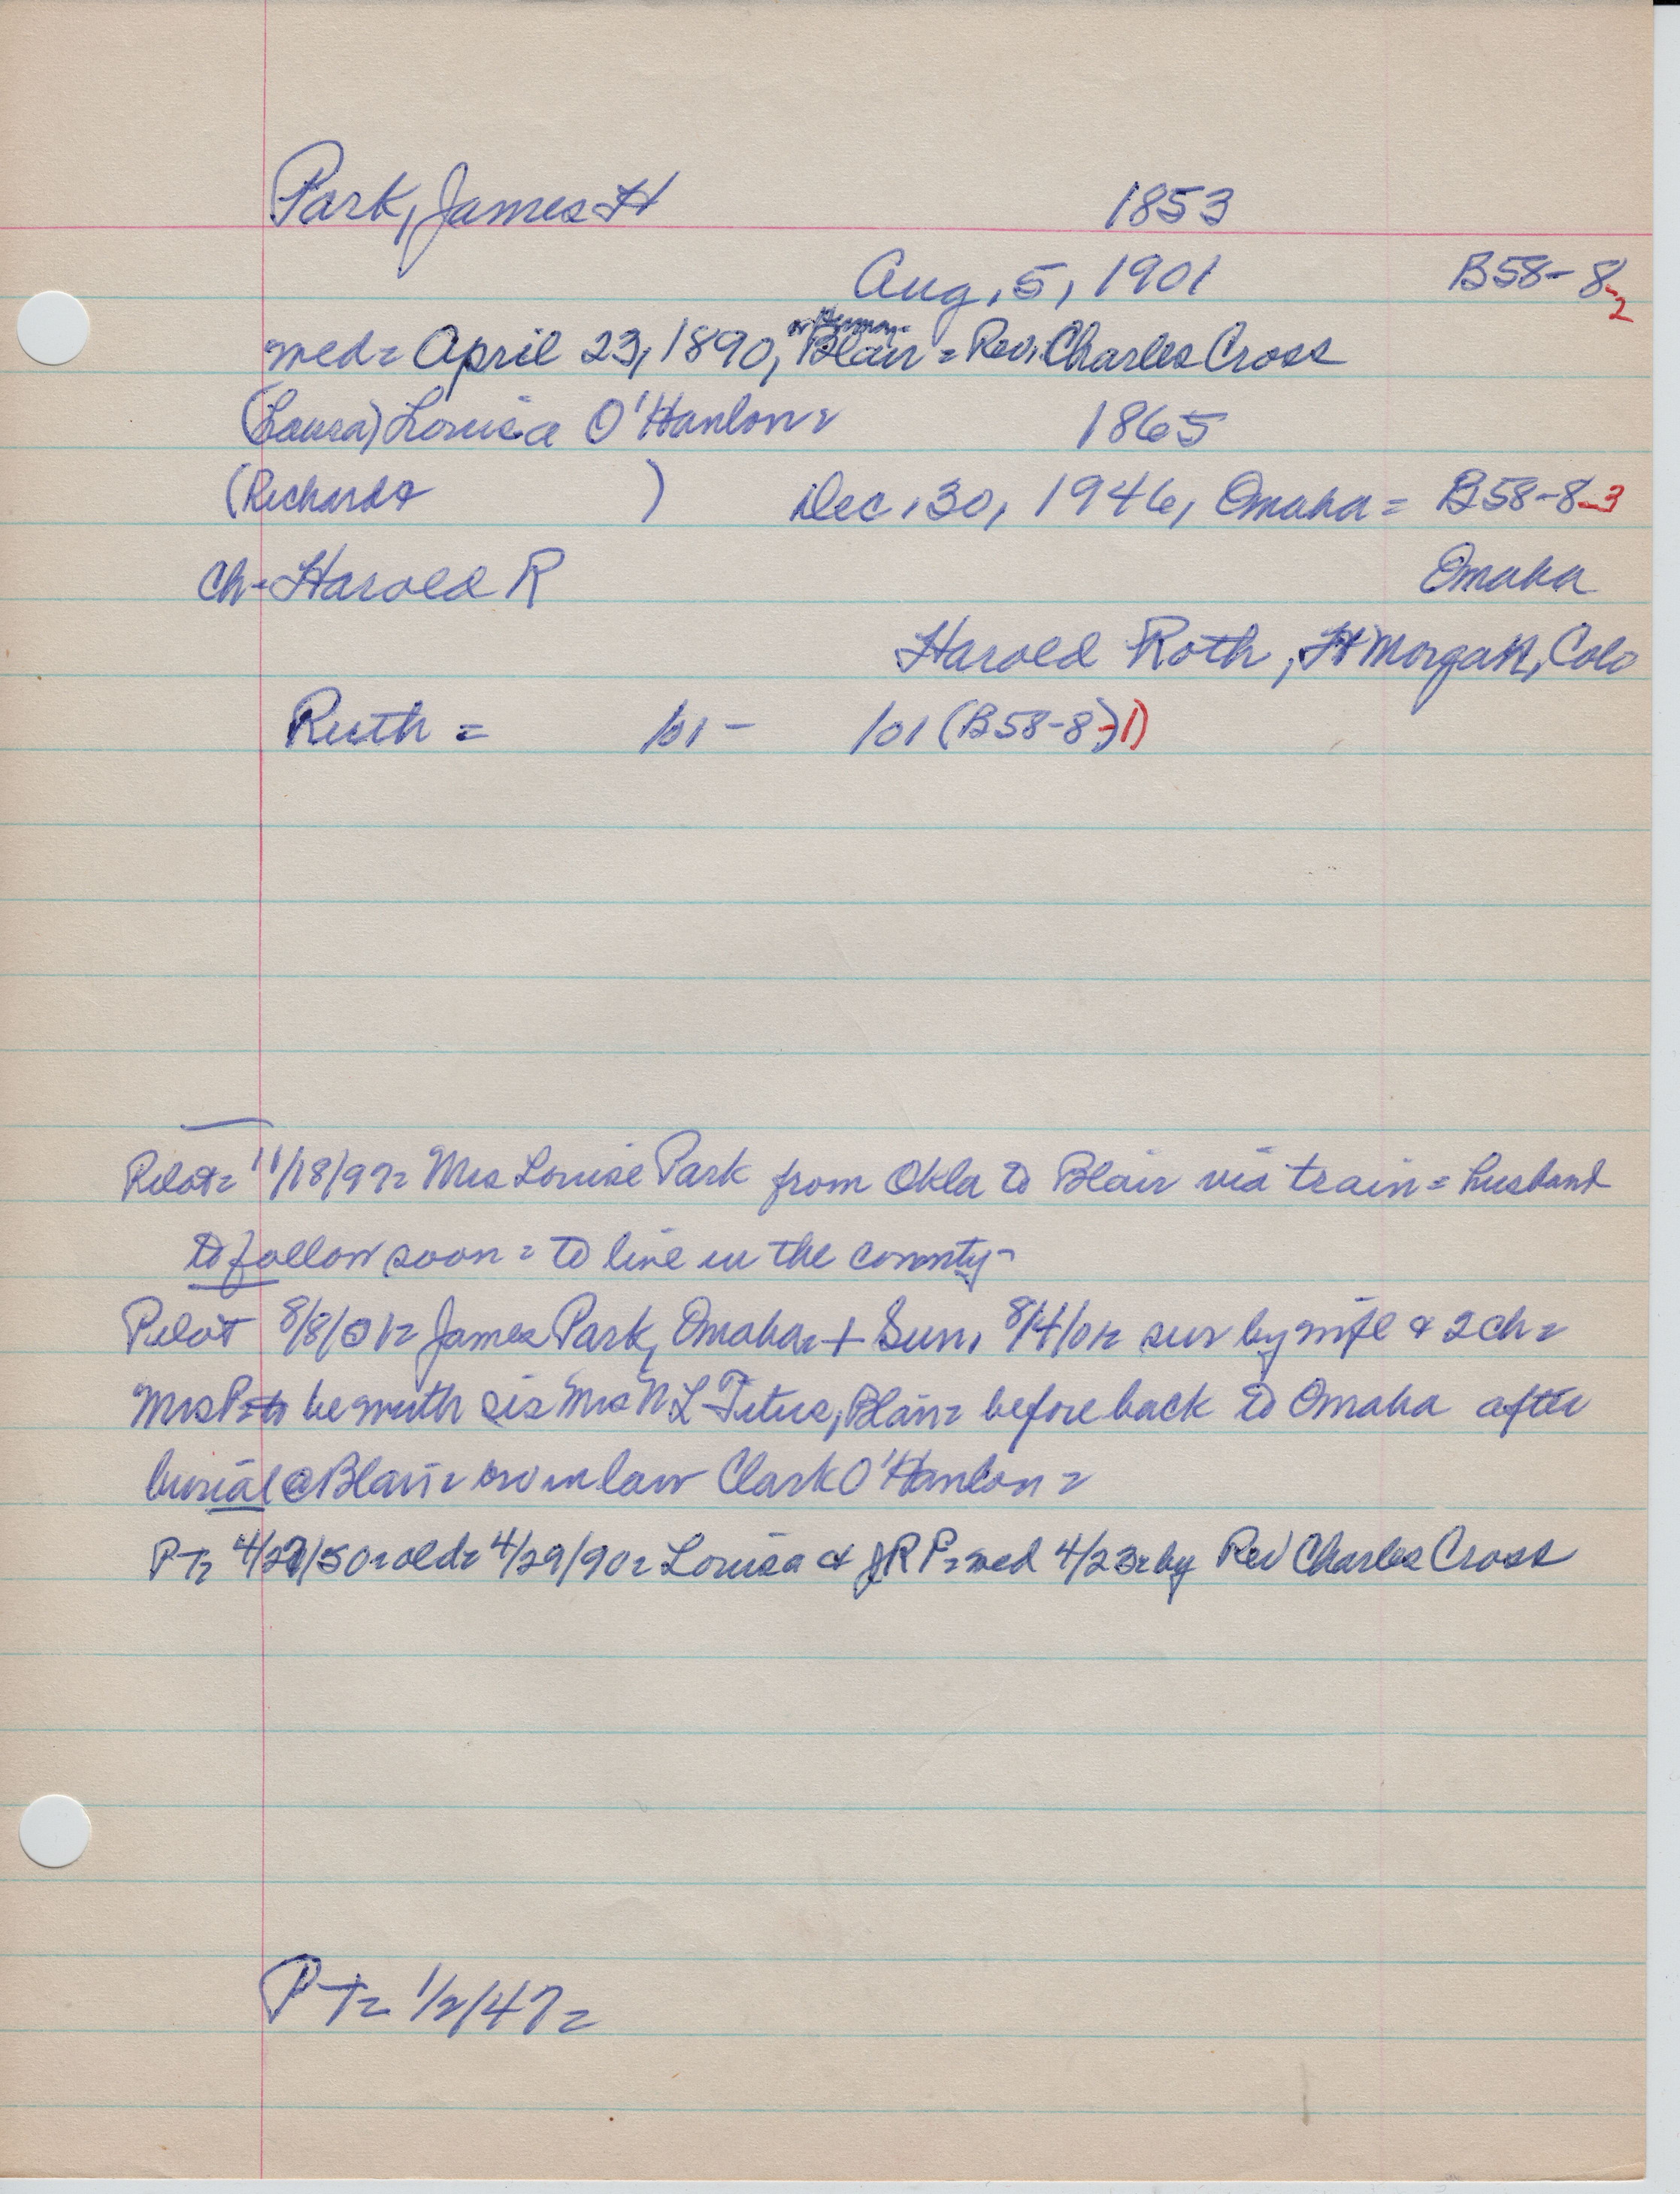 Park, James H 1853
Aug, 5, 1901 B58-8-2
or Herman
wed= April 23, 1890, Blair = Rev. Charles Cross
(Laura) Louisa O'Hanlon= 1865
(Richard & ) Dec. 30, 1946, Omaha = B58-8-3
Ch- Harold R Omaha
Harold Roth, Ft Morgan, Colo
Ruth = /01 - /01 (B58-8)-1)
Pilot= 11/18/97= Mrs Louise Park from Okla to Blair via train = husband
to follow soon = to live in the county-
Pilot 8/8/01= James Park, Omaha= + Sun, 8/4/01= sur by wife & 2 ch=
Mrs P= to be with sis Mrs N L Titus, Blair= before back to Omaha after
burial @ Blair= bro in law Clark O'Hanlon=
PT= 4/27/50= old= 4/29/90= Louisa & JRP= wed 4/23= by Rev Charles Cross
PT= 1/2/47=